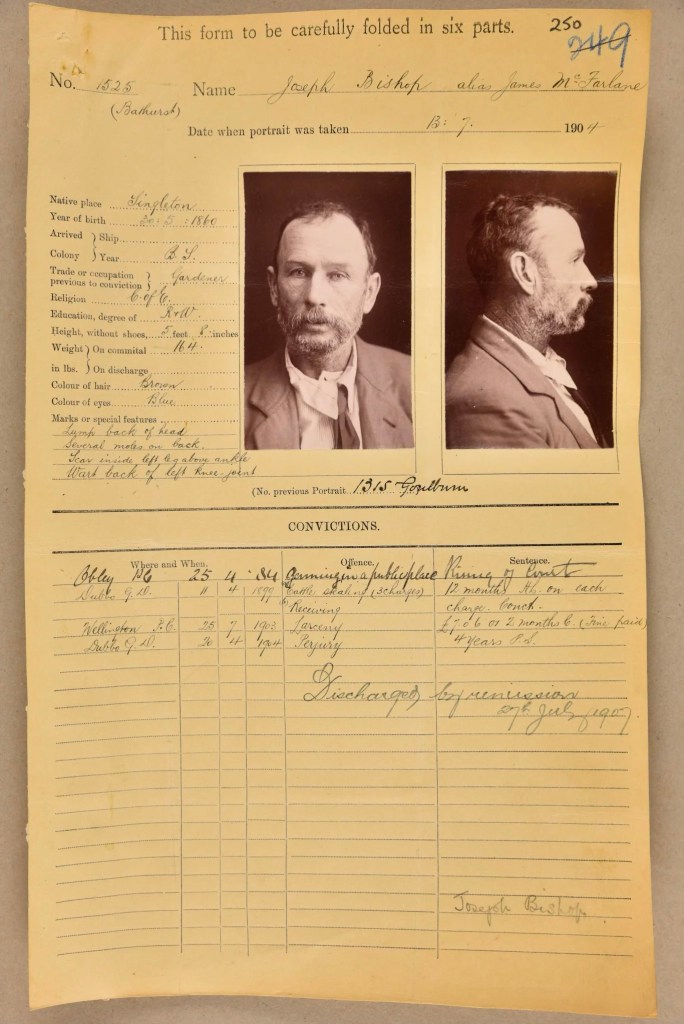 This form to be carefully folded in six parts.
250
249
No. 1525 Name Joseph Bishop alias James McFarlane
(Bathurst)
Date when portrait was taken 13: 7. 1904
Native place Singleton
Year of birth 30: 5: 1860
Arrived } Ship
Colony } Year B. S.
Trade or occupation previous to conviction } Gardener
Religion C. of E.
Education, degree of R & W.
Height, without shoes, 5 feet 8 inches
Weight } On committal 164
in lbs. } On discharge
Colour of hair Brown
Colour of eyes Blue
Marks or special features
Lump back of head
Several moles on back.
Scar inside left leg above ankle
Wart back of left knee-joint
(No. previous Portrait 1315 Goulburn
CONVICTIONS.
Where and When. Offence. Sentence.
Obley P.C. 25 4 84 Gaming in a public place Rising of Court
Dubbo Q.S. 11 4 1899 Cattle stealing (3 charges) 12 months H.L. on each
Receiving charge. Conc.
Wellington P.C. 25 7 1903 Larceny £7.0.6 or 2 months (Fine paid)
Dubbo Q.S. 20 4 1904 Perjury 4 years P.S.
Discharged by remission
27th July 1907.
Joseph Bishop